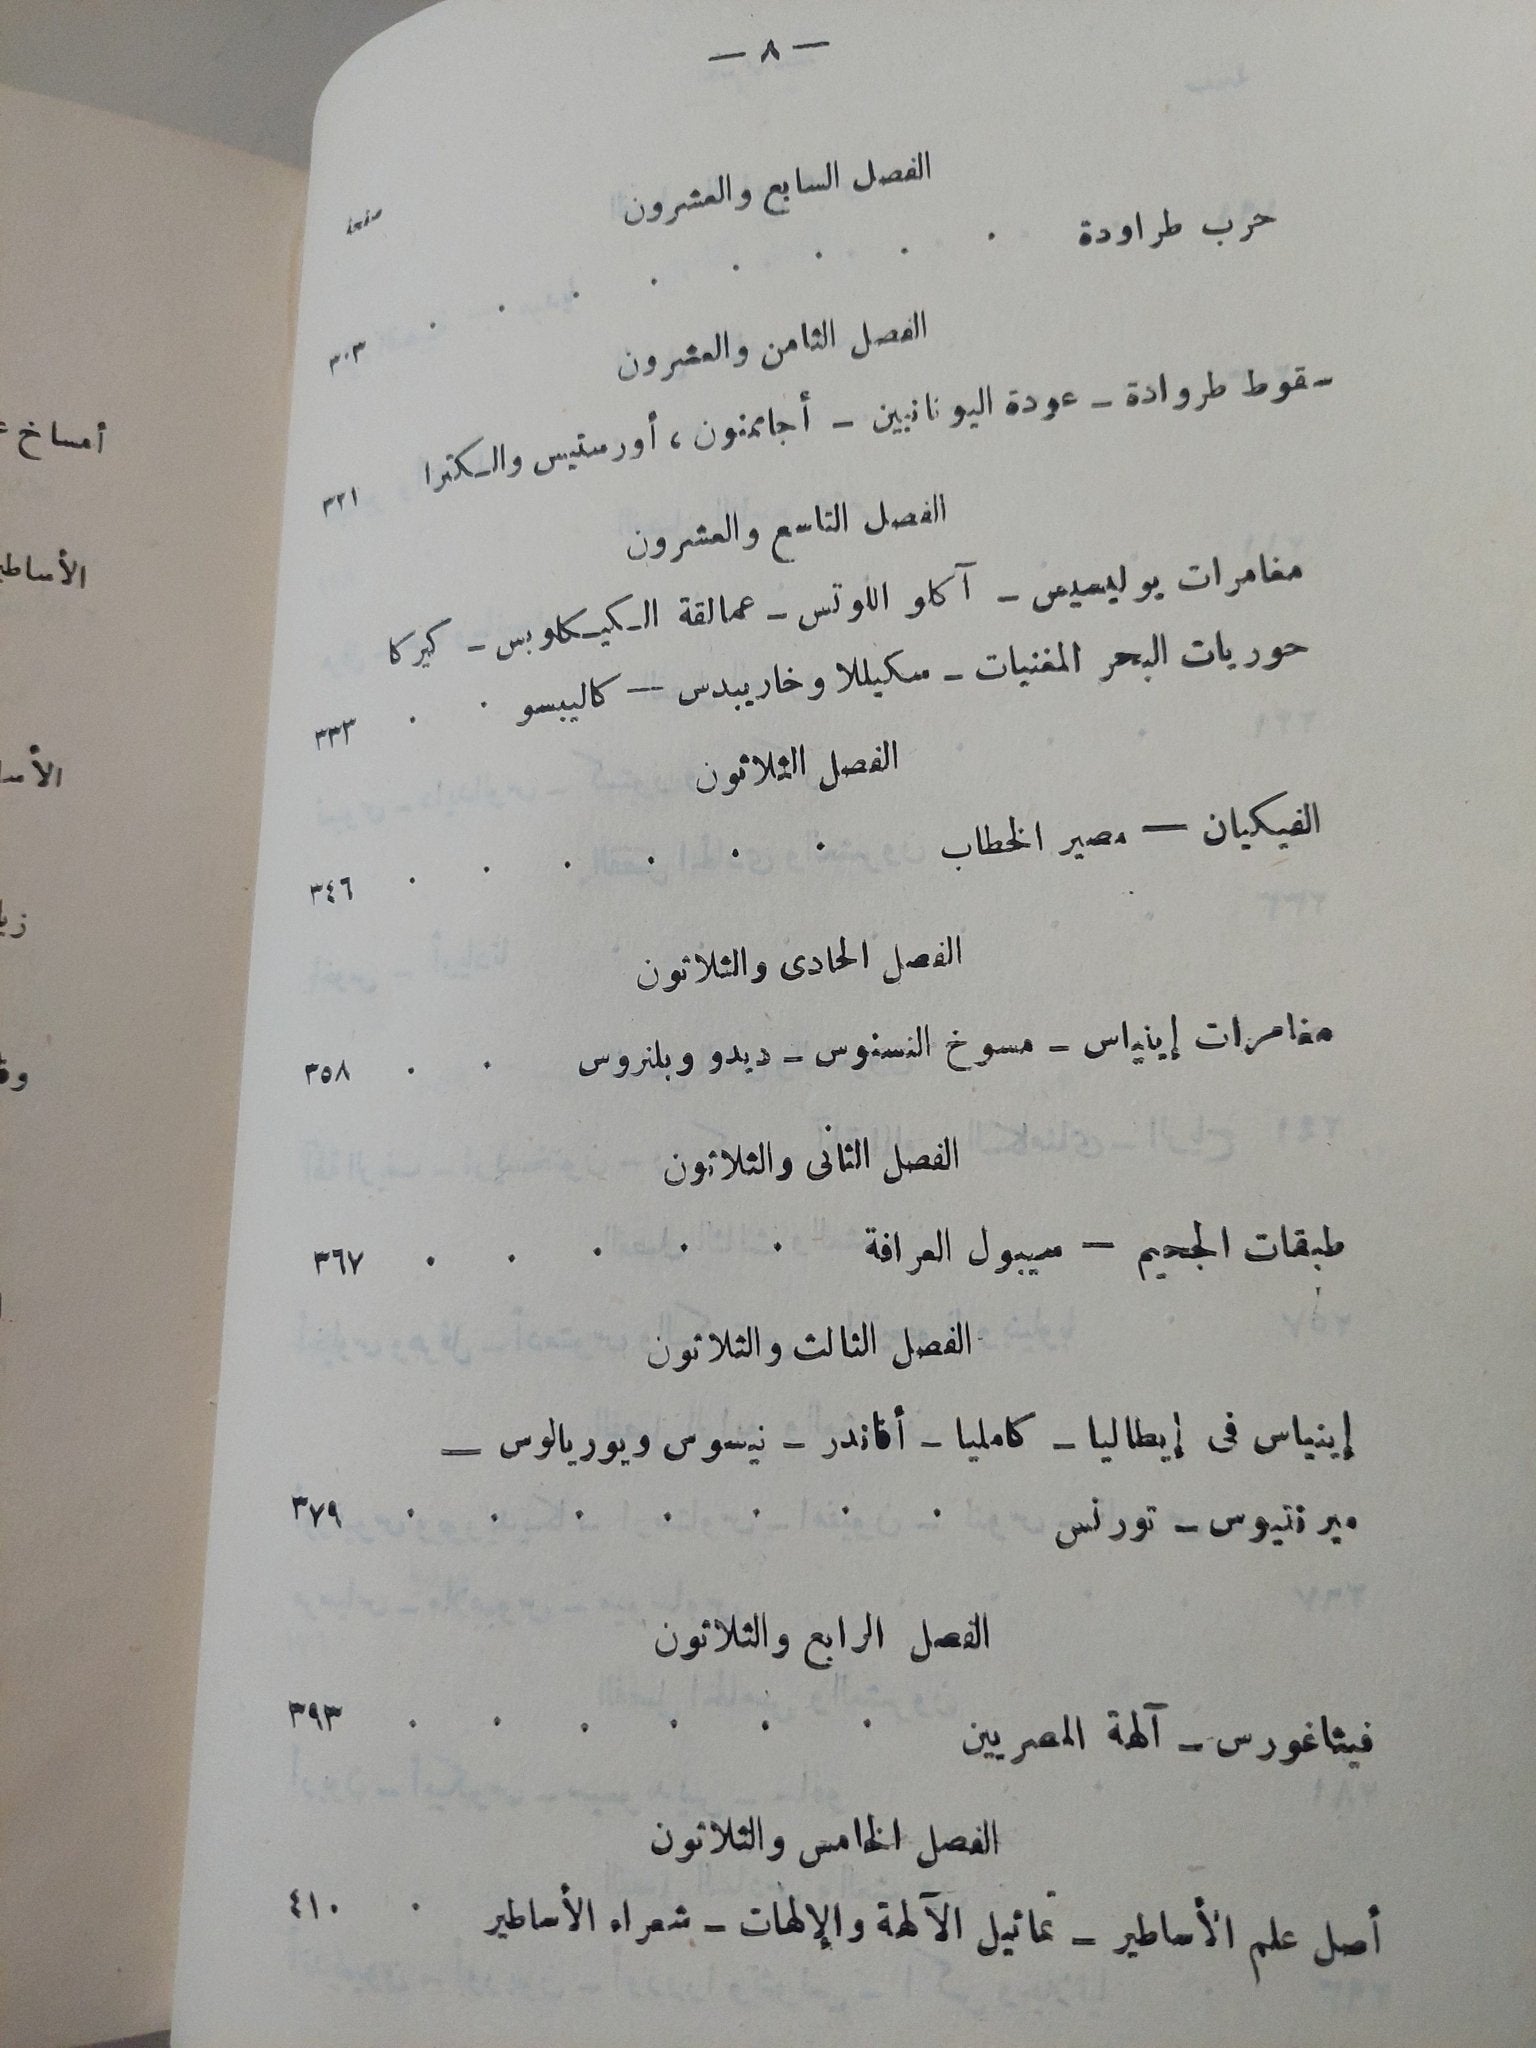 — ٨ —
الفصل السابع والعشرون
صفحة
حرب طراودة . . . . . . . . ٣٠٣
الفصل الثامن والعشرون
سقوط طروادة – عودة اليونانيين – أجاممنون ، أورستيس والـكترا ٣٢١
الفصل التاسع والعشرون
مغامرات يوليسيس – آكلو اللوتس – عمالقة الـكيـكلوبس – كيركا
حوريات البحر المغنيات – سكيللا وخاريبدس — كاليبسو . . ٣٣٣
الفصل الثلاثون
الفيكيان — مصير الخطاب . . . . . . ٣٤٦
الفصل الحادى والثلاثون
مغامرات إينياس – مسوخ النسنوس – ديدو وبلنروس . . ٣٥٨
الفصل الثانى والثلاثون
طبقات الجحيم — سيبول العرافة . . . . . ٣٦٧
الفصل الثالث والثلاثون
إينياس فى إيطاليا – كامليا – أفاندر – نيسوس ويوريالوس —
ميزنتيوس – تورنس . . . . . . . ٣٧٩
الفصل الرابع والثلاثون
فيثاغورس – آلهة المصريين . . . . . . ٣٩٣
الفصل الخامس والثلاثون
أصل علم الأساطير – تماثيل الآلهة والإلهات – شعراء الأساطير . ٤١٠
أمساخ
الأساطير